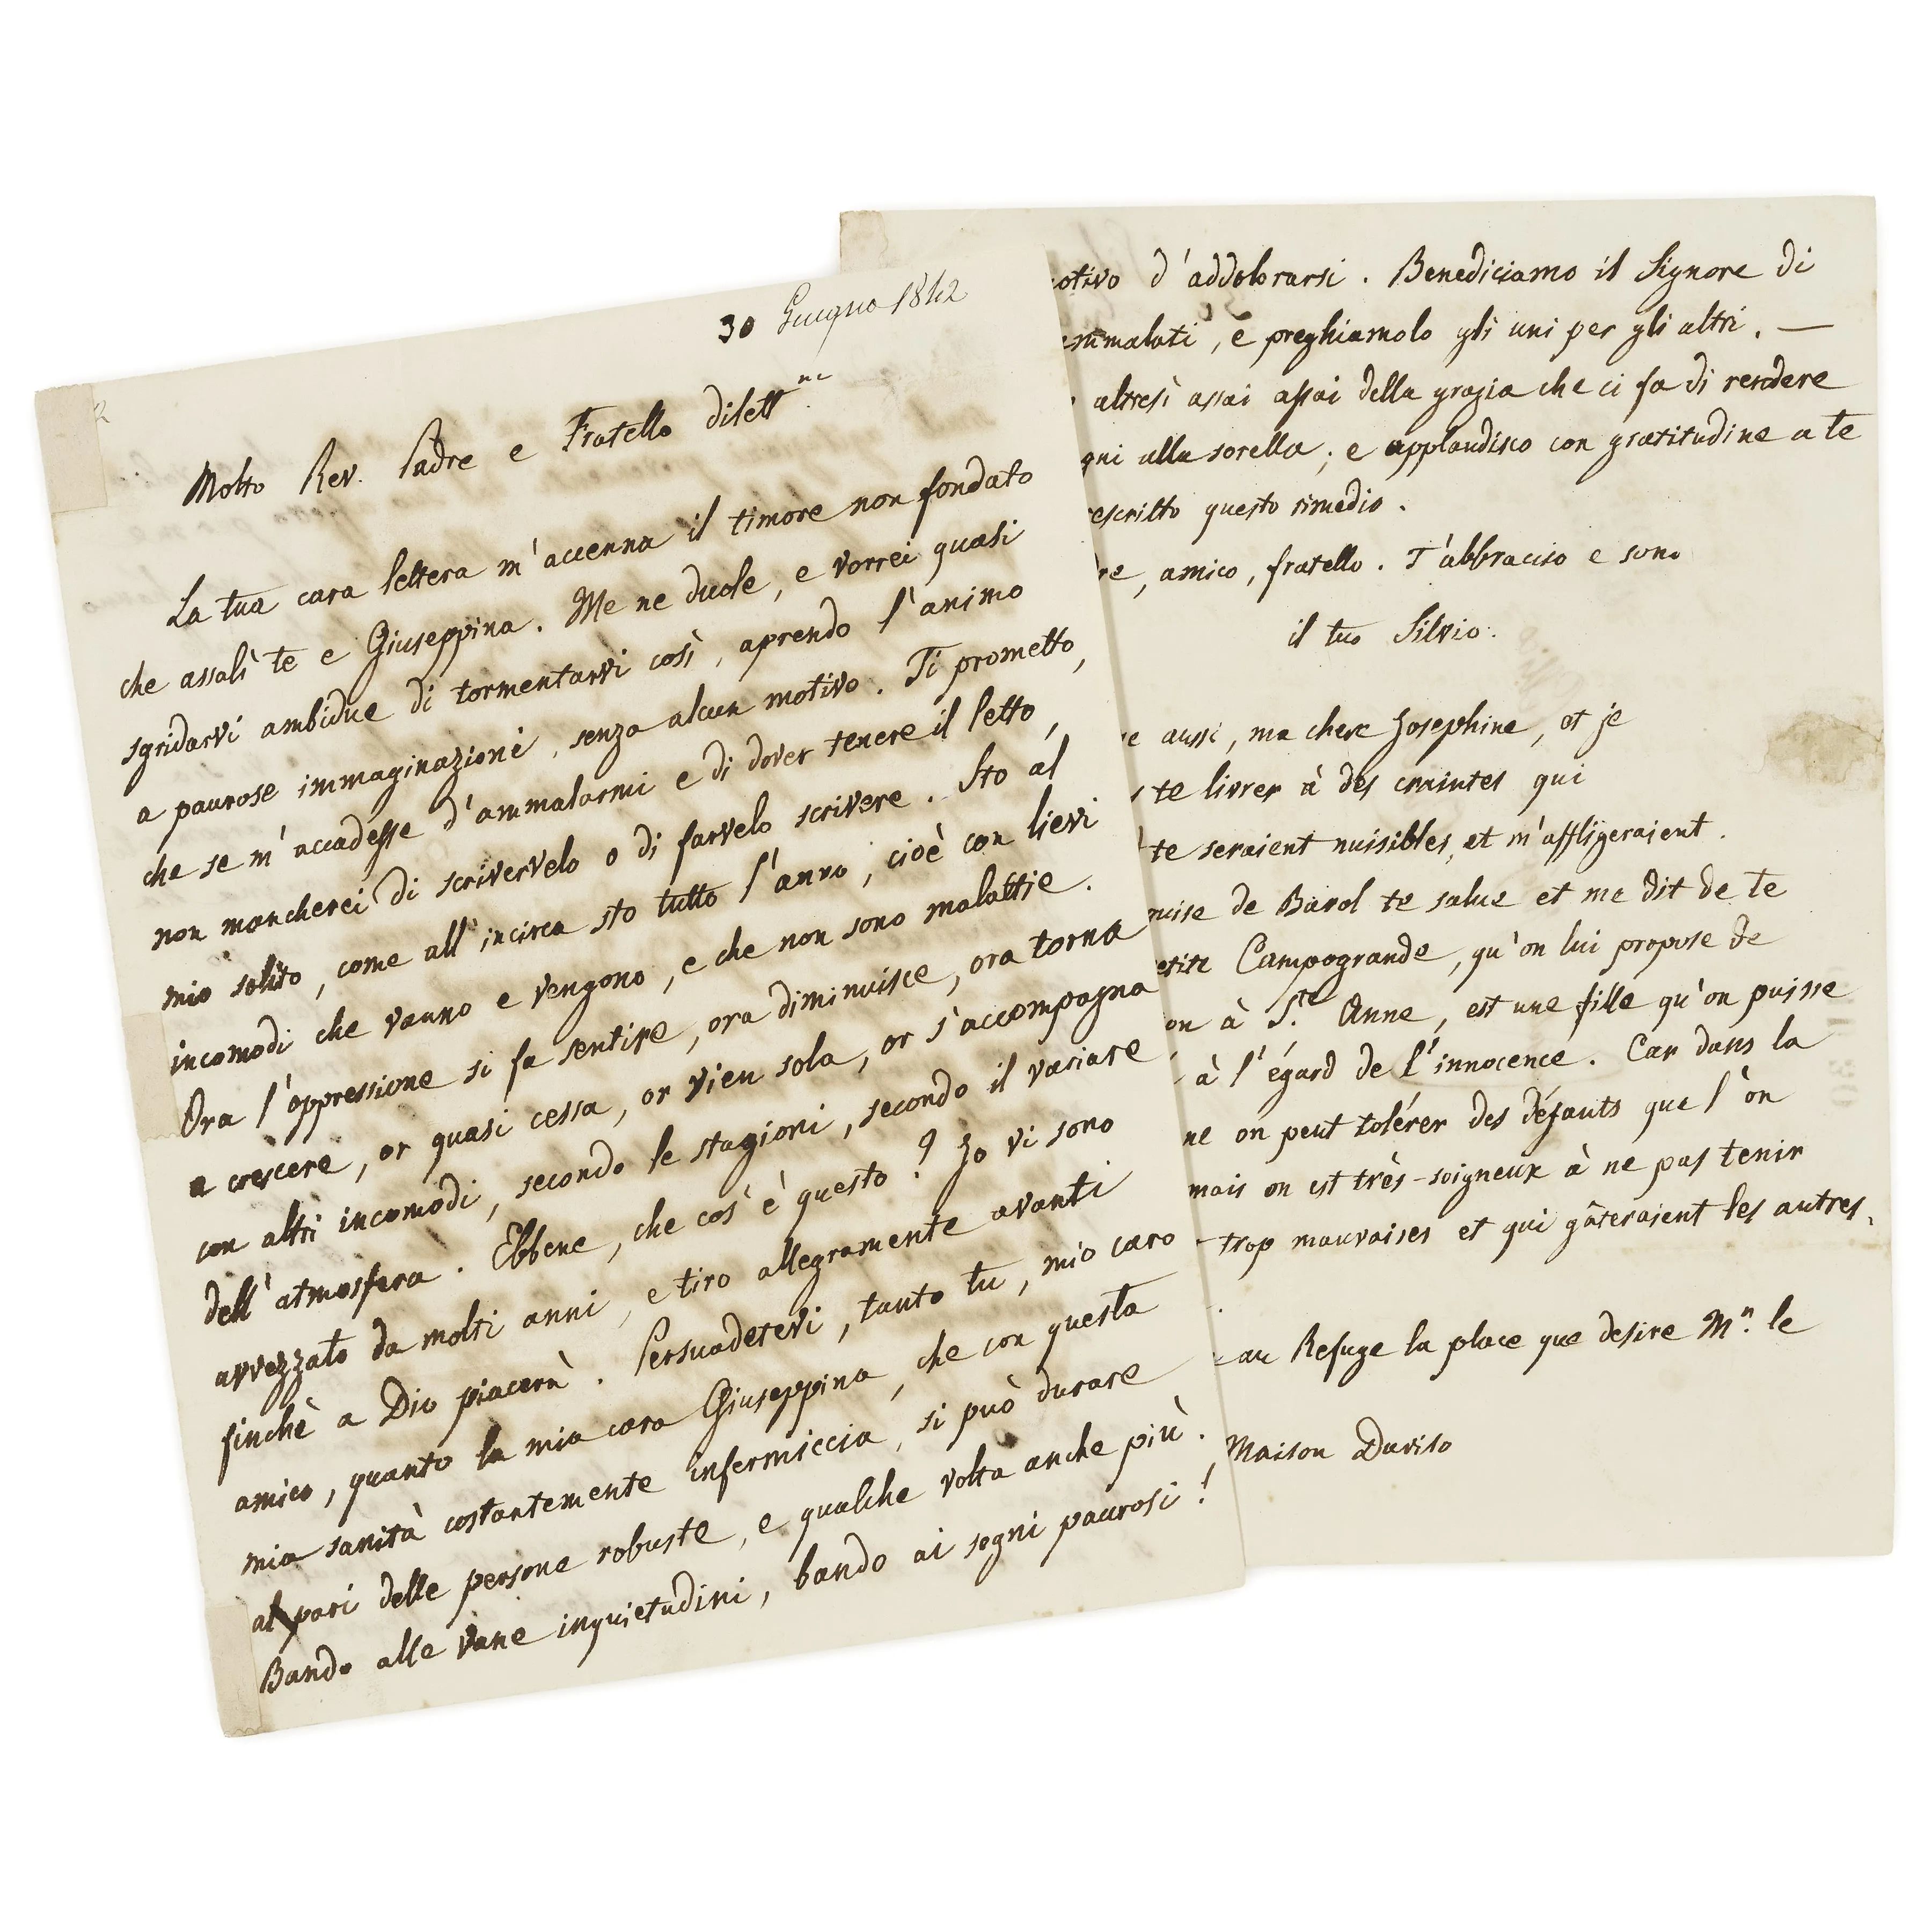 30 Giugno 1842
Molto Rev. Padre e Fratello dilett.mo
La tua cara lettera m'accenna il timore non fondato
che assalì te e Giuseppina. Me ne duole, e vorrei quasi
sgridarvi ambidue di tormentarvi così, aprendo l'animo
a paurose immaginazioni, senza alcun motivo. Ti prometto,
che se m'accadesse d'ammalarmi e di dover tenere il letto,
non mancherei di scrivervelo o di farvelo scrivere. Sto al
mio solito, come all'incirca sto tutto l'anno, cioè con lievi
incomodi che vanno e vengono, e che non sono malattie.
Ora l'oppressione si fa sentire, ora diminuisce, ora torna
a crescere, or quasi cessa, or vien sola, or s'accompagna
con altri incomodi, secondo le stagioni, secondo il variare
dell'atmosfera. Ebbene, che cos'è questo? Io vi sono
avvezzato da molti anni, e tiro allegramente avanti
finchè a Dio piacerà. Persuadetevi, tanto tu, mio caro
amico, quanto la mia cara Giuseppina, che con questa
mia sanità costantemente infermiccia, si può durare
al pari delle persone robuste, e qualche volta anche più.
Bando alle vane inquietudini, bando ai sogni paurosi!
otivo d'addolorarsi. Benediciamo il Signore di
ammalati, e preghiamolo gli uni per gli altri. —
altresì assai assai della grazia che ci fa di rendere
gni alla sorella; e applaudisco con gratitudine a te
escritto questo rimedio.
re, amico, fratello. T'abbraccio e sono
il tuo Silvio.
e aussi, ma chere Josephine, et je
te livrer à des craintes qui
te seraient nuisibles, et m'affligeraient.
uise de Barol te salue et me dit de te
etite Campogrande, qu'on lui propose de
on à S.te Anne, est une fille qu'on puisse
à l'égard de l'innocence. Car dans la
ne on peut tolérer des défauts que l'on
mais on est très-soigneux à ne pas tenir
trop mauvaises et qui gâteraient les autres.
au Refuge la place que desire M.r le
Maison Daviso